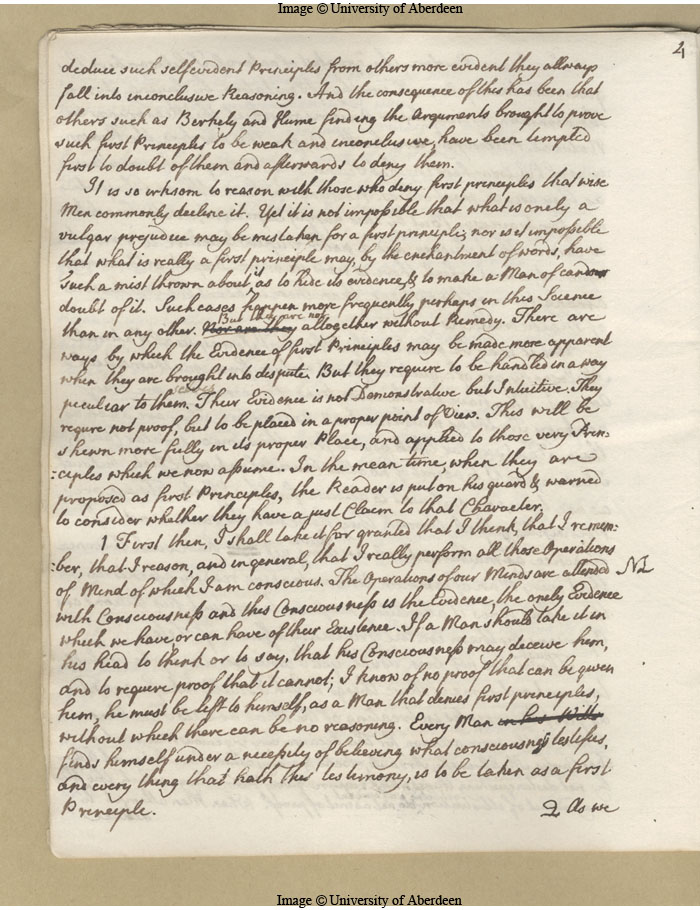 Image © University of Aberdeen
4
deduce such selfevident Principles from others more evident they allways
fall into inconclusive Reasoning. And the consequence of this has been that
others such as Berkely and Hume finding the Arguments brought to prove
such first Principles to be weak and inconclusive, have been tempted
first to doubt of them and afterwards to deny them.
It is so irksom to reason with those who deny first principles that wise
Men commonly decline it. Yet it is not impossible that what is onely a
vulgar prejudice may be mistaken for a first principle, nor is it impossible
that what is really a first principle may, by the enchantment of words, have
such a mist thrown about, as to hide its evidence, & to make a Man of candour
doubt of it. Such cases happen more frequently perhaps in this Science
But they are not
than in any other. Nor are they altogether without Remedy. There are
ways by which the Evidence of first Principles may be made more apparent
when they are brought into dispute. But they require to be handled in a way
peculiar to them. Their Evidence is not Demonstrative but Intuitive. They
requre not proof, but to be placed in a proper point of View. This will be
shewn more fully in its proper Place, and applied to those very Prin:
:ciples which we now assume. In the mean time, when they are
proposed as first Principles, the Reader is put on his guard & warned
to consider whether they have a just Claim to that Character.
1 First then, I shall take it for granted that I think, that I remem:
:ber, that I reason, and in general, that I really perform all those Operations
of Mind of which I am conscious. The Operations of our Minds are attended
with Consciousness and this Consciousness is the Evidence, the onely Evidence
which we have or can have of their Existence. If a Man should take it in
his head to think or to say, that his Consciousness may deceive him,
and to require proof that it cannot; I know of no proof that can be given
him, he must be left to himself, as a Man that denies first principles,
without which there can be no reasoning. Every Man
finds himself under a necessity of believing what consciousness testifies,
and every thing that hath this testimony, is to be taken as a first
Principle.
2 As we
Image © University of Aberdeen